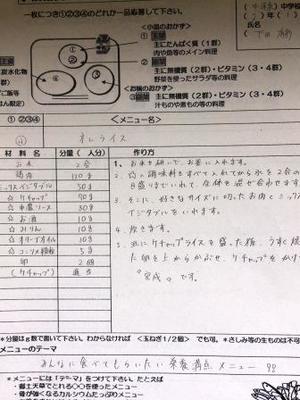 一枚につき①②③④のどれか一品応募して下さい。
<小皿のおかず>
主にたんぱく質(1群)
肉や魚等のメイン料理
主に無機質(2群)・ビタミン(3・4群)
野菜を使ったサラダ等の料理
<お椀のおかず>
主に無機質(2群)・ビタミン(3・4群)
汁ものや煮もの等の料理
① ②③④
<メニュー名>
オムライス
材 料 名
分量( 人分)
作り方
お米 2合
鶏肉 110g
ミックスベジタブル 50g
☆ケチャップ 70g
☆中濃ソース 30g
☆お酒 10g
☆みりん 10g
☆オリーブオイル 10g
☆コンソメ顆粒 5g
卵 2個
(ケチャップ) 適当
1. お米を研いで、お釜に入れます。
2. ☆の調味料をすべて入れてから水を2合の
目盛りまでいれて、全体を混ぜ合わせます
3. そこに、好きなサイズに切ったお肉とミックスベ
ジタブルをいれます。
4. 炊きます。
5. 皿にケチャップライスを盛った後、うすく焼い
た卵を上からかぶせ、ケチャップをかけて
"完成" です。
*分量はg数で書いて下さい。わからなければ <玉ねぎ1/2個> でも可。*さしみ等の生ものは不可
メニューのテーマ
みんなに食べてもらいたい栄養満点メニュー
*メニューには「テーマ」をつけて下さい。たとえば
・郷土天草でとれる〇〇を使ったメニュー
・骨が強くなるカルシウムたっぷりのメニュー